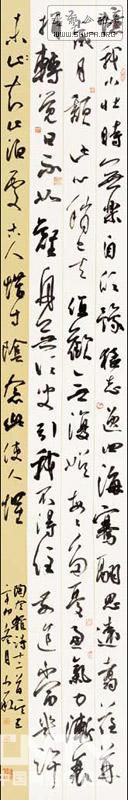 憶我少壮時無樂自欣豫猛志逸四海騫翮思遠翥荏苒
歲月頹此心稍已去值歡無復娛每每多憂慮氣力漸衰
損轉覺日不如壑舟無須臾引我不得住前途當幾許
未知止泊處古人惜寸陰念此使人懼
陶令雜詩十二首之五
辛卯冬月